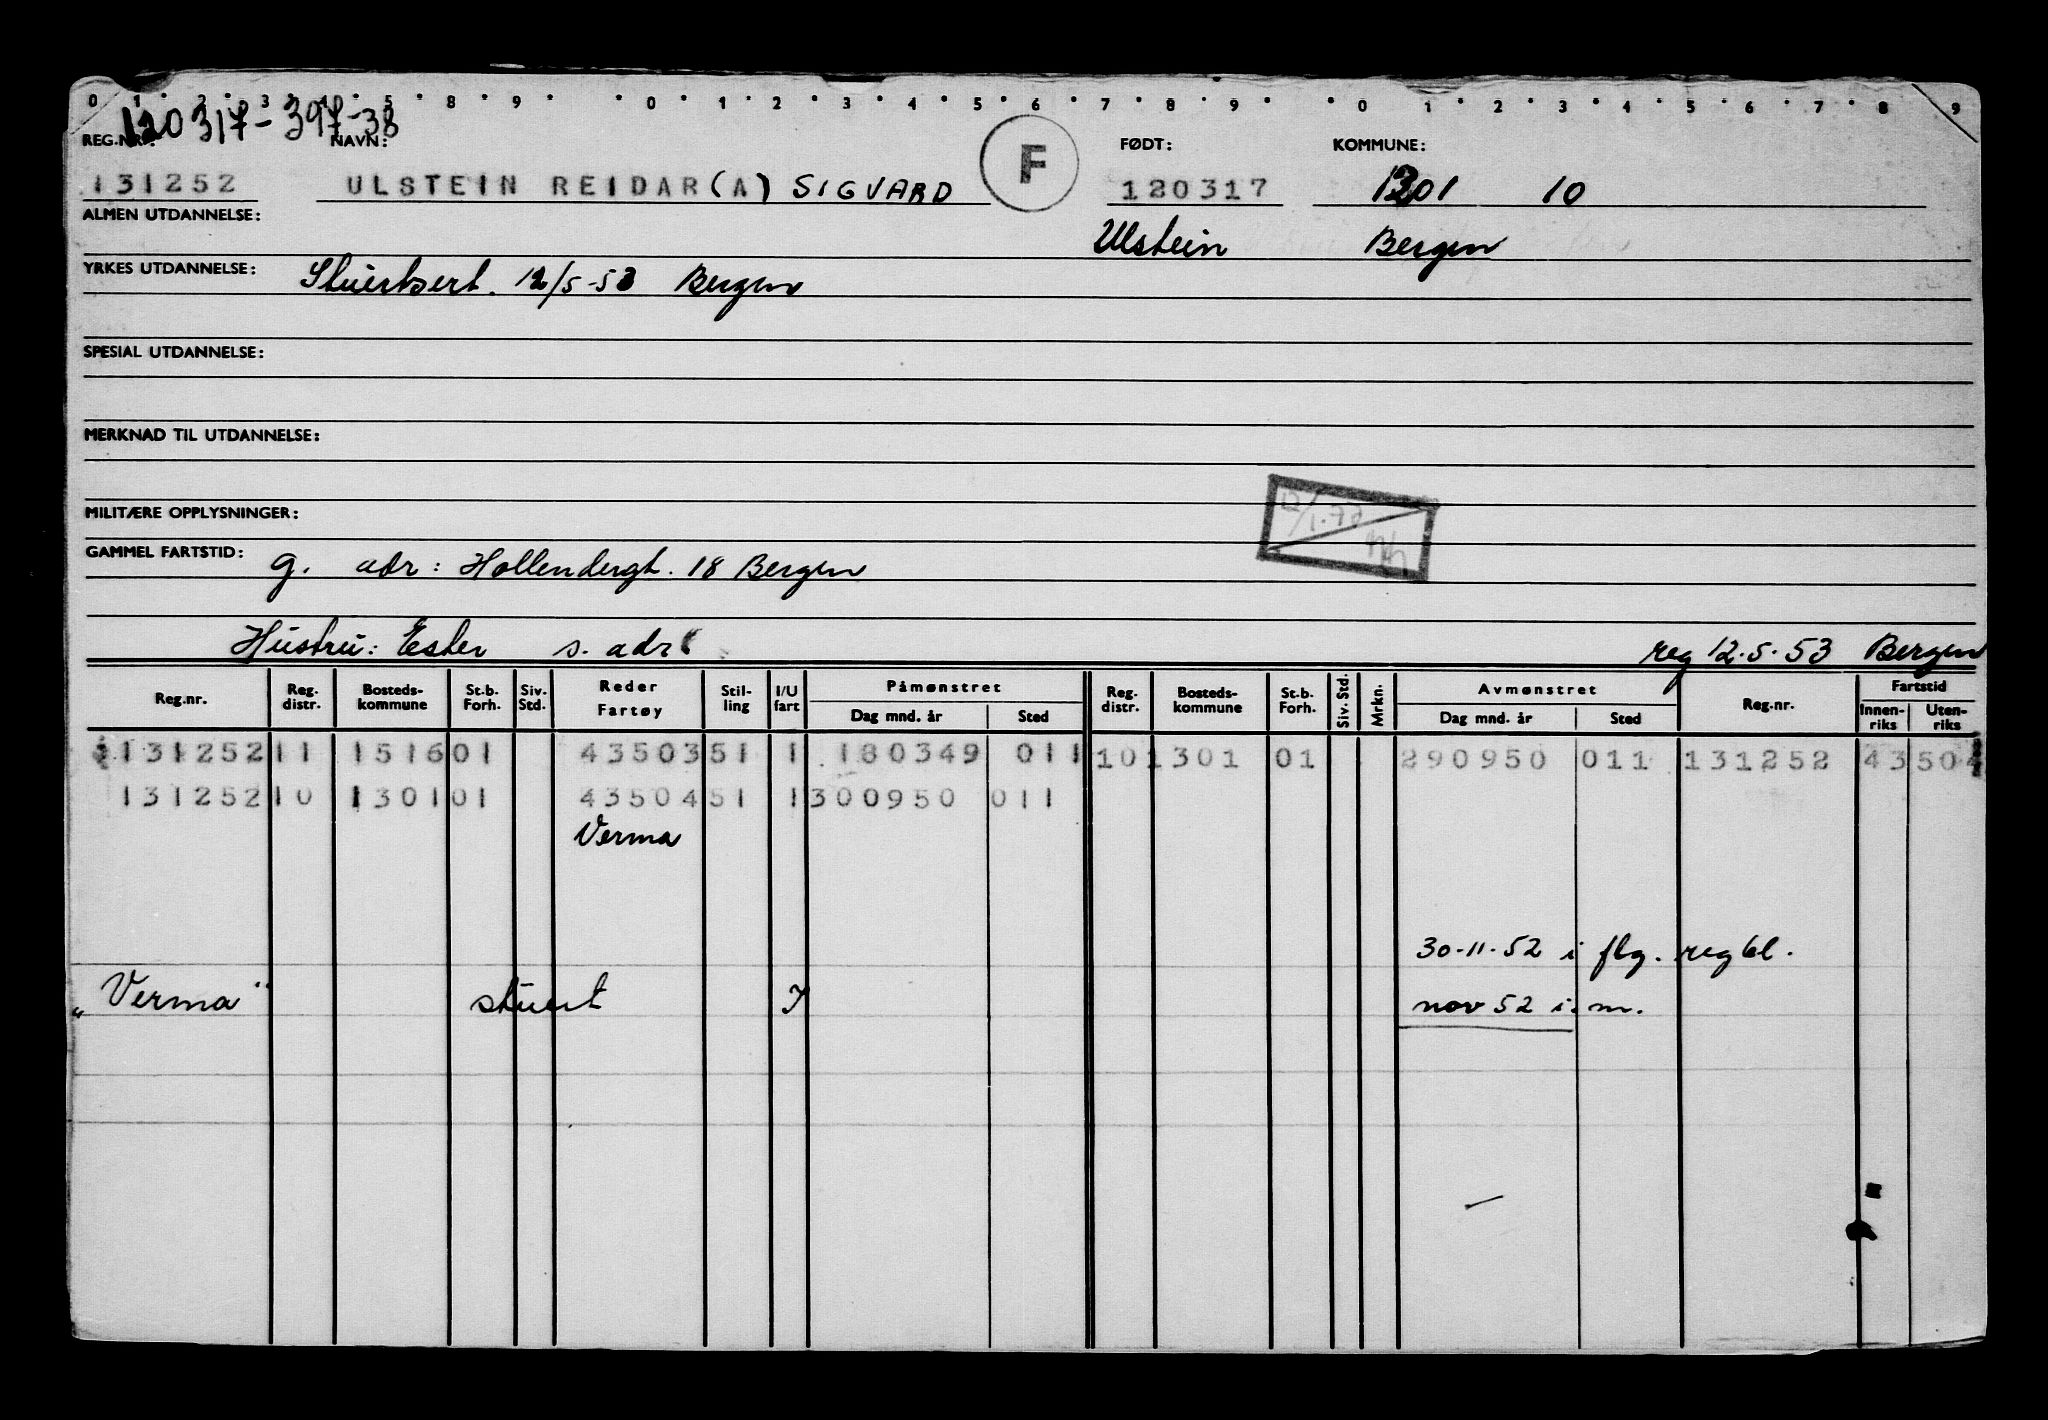 0 1 2 3 4 5 8 9 0 1 2 3 4 5 6 7 8 9 0 1 2 3 4 5 6 7 8 9
120317-397-38
REG.NR.: NAVN: F FØDT: KOMMUNE:
131252 ULSTEIN REIDAR(A) SIGVARD 120317 1301 10
ALMEN UTDANNELSE: Ulstein Bergen
YRKES UTDANNELSE: Stuertsert. 12/5-53 Bergen
SPESIAL UTDANNELSE:
MERKNAD TIL UTDANNELSE:
MILITÆRE OPPLYSNINGER:
GAMMEL FARTSTID: g. adr: Hollendergt. 18 Bergen
Hustru: Ester s. adr. reg 12.5.53 Bergen
Reg.nr. Reg. distr. Bosteds-kommune St.b. Forh. Siv. Std. Reder Fartøy Stil-ling I/U fart Påmønstret Dag mnd. år Sted Reg. distr. Bosteds-kommune St.b. Forh. Siv. Std. Mrkn. Avmønstret Dag mnd. år Sted Reg.nr. Fartstid Innen-riks Uten-riks
131252 11 1516 01 43503 51 1 180349 011 10 1301 01 290950 011 131252 43 504
131252 10 1301 01 43504 51 1 300950 011
Verma
30-11-52 i flg. regbl.
"Verma" stuert I nov 52 i. m.